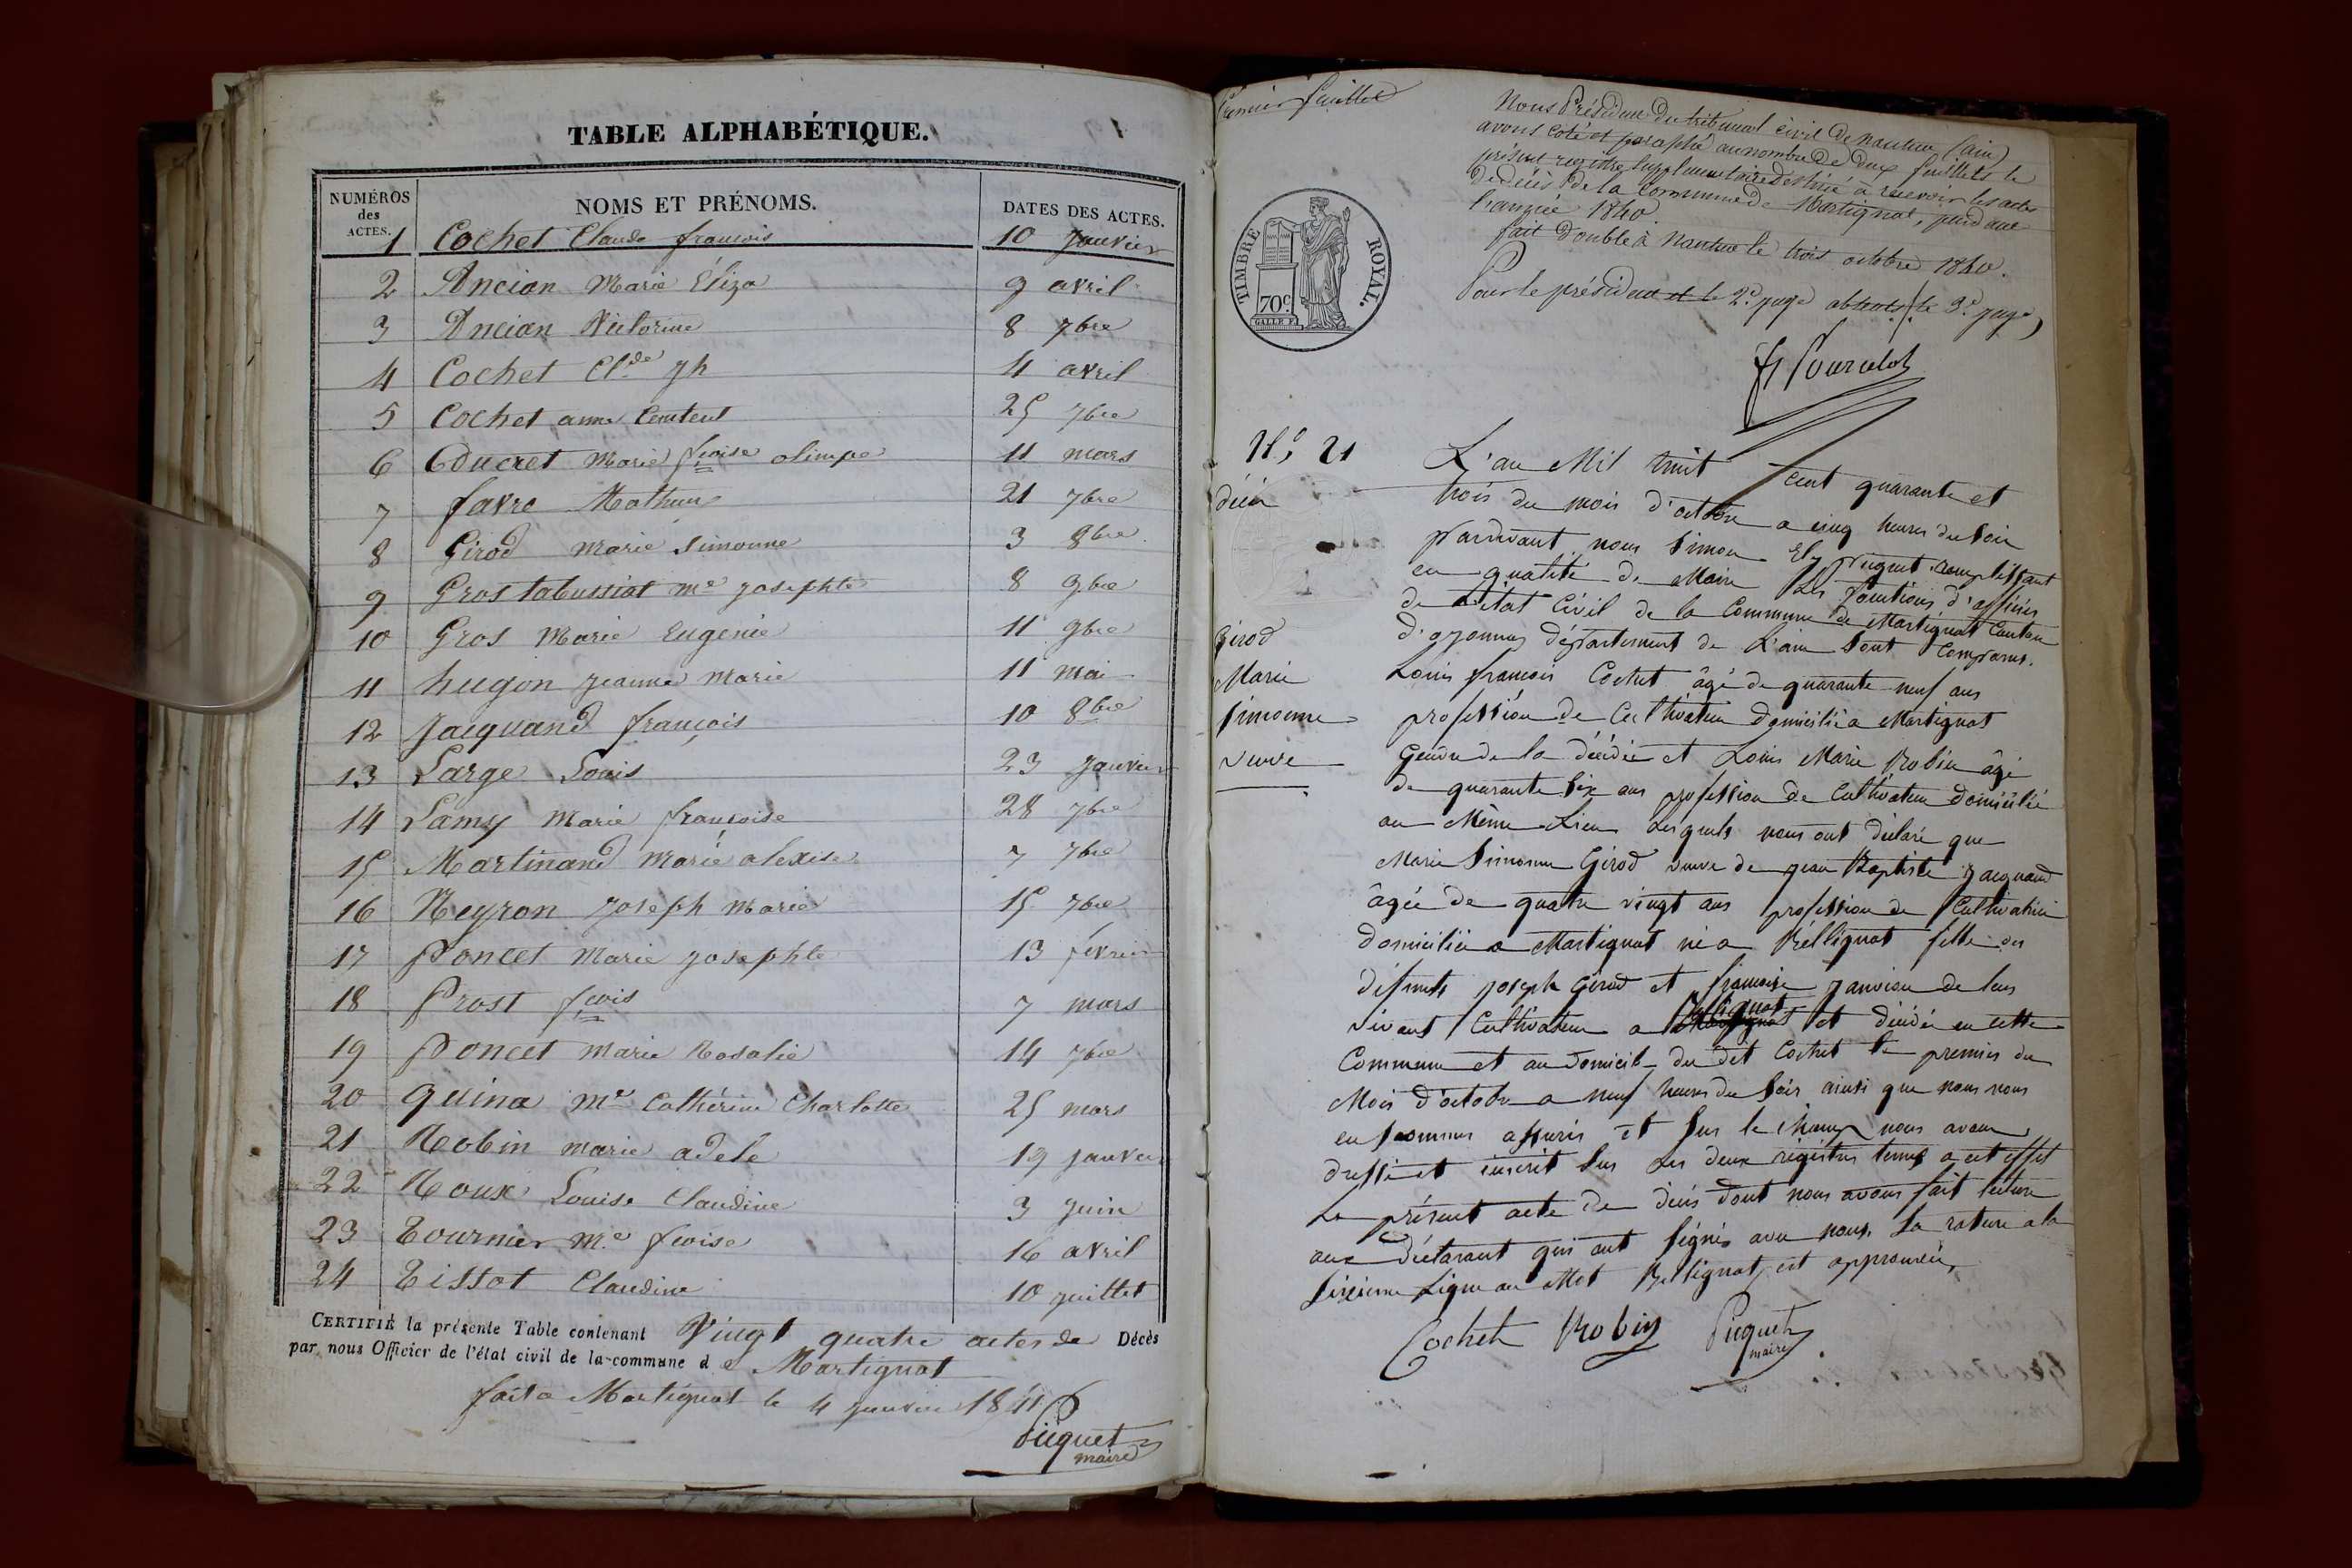 TABLE ALPHABÉTIQUE.
NUMÉROS des ACTES. NOMS ET PRÉNOMS. DATES DES ACTES.
1 Cochet Claude françois 10 Janvier
2 Ancian Marie Éliza 9 avril
3 Ancian Victorine 8 7bre
4 Cochet Clde jh 4 avril
5 Cochet anne 25 7bre
6 Ducret Marie fçoise olimpe 11 mars
7 favre Mathieu 21 7bre
8 Girod Marie Simonne 3 8bre
9 Gros tabussiat me josephte 8 9bre
10 Gros Marie Eugenie 11 9bre
11 hugon jeanne Marie 11 mai
12 Jacquand françois 10 8bre
13 Large Louis 23 janvier
14 Lamy Marie françoise 28 7bre
15 Martinand Marie alexise 7 7bre
16 Neyron joseph Marie 15 7bre
17 Poncet Marie josephte 13 février
18 Prost fçois 7 mars
19 Poncet Marie Rosalie 14 7bre
20 quina me Cathérine Charlotte 25 mars
21 Robin marie adele 19 janvier
22 Roux Louise Claudine 3 juin
23 Tournier me fçoise 16 avril
24 Tissot Claudine 10 juillet
CERTIFIÉ la présente Table contenant Vingt quatre actes de Décès
par nous Officier de l'état civil de la commune d e Martignat
fait a Martignat le 4 janvier 1841
Piquet
maire
Premier feuillet
Nous Président du tribunal civil de nantua (ain)
avons coté et paraphé au nombre de deux feuillets le
présent registre supplémentaire destiné à recevoir les actes
de décès de la Commune de Martignat, pendant
l'année 1840.
fait double à Nantua le trois octobre 1840.
Pour le président et le 2e juge absents, le 3e juge,
TIMBRE ROYAL.
70c
N° 21
décès
Girod
Marie
Simonne
veuve
L'an Mil huit cent quarante et
trois du mois d'octobre a cinq heures du soir
pardevant nous Simon Piquet remplissant
en qualité de Maire les fonctions d'officier
de l'état Civil de la Commune de Martignat Canton
d'oyonnax département de L'ain sont comparus.
Louis françois Cochet âgé de quarante neuf ans
profession de Cultivateur domicilié a Martignat
Gendre de la décédée et Louis Marie Robin âgé
de quarante six ans profession de Cultivateur domicilié
au Même Lieu lesquels nous ont déclaré que
Marie Simonne Girod veuve de jean Baptiste jacquand
âgée de quatre vingt ans profession de Cultivatrice
domiciliée a Martignat né a Béllignat fille des
défunts joseph Girod et françoise janvion de leur
vivant Cultivateur a Bellignat et décédée en cette
Commune et au domicile du dit Cochet le premier du
Mois d'octobre a neuf heures du soir ainsi que nous nous
en sommes assurés et sur le champ nous avons
dressé et inscrit sur les deux régistres tenus a cet effet
Le présent acte de décès dont nous avons fait lecture
aux déclarant qui ont signés avec nous. La rature a la
seizieme Ligne au Mot Bellignat est approuvée,
Cochet Robin Piquet
maire